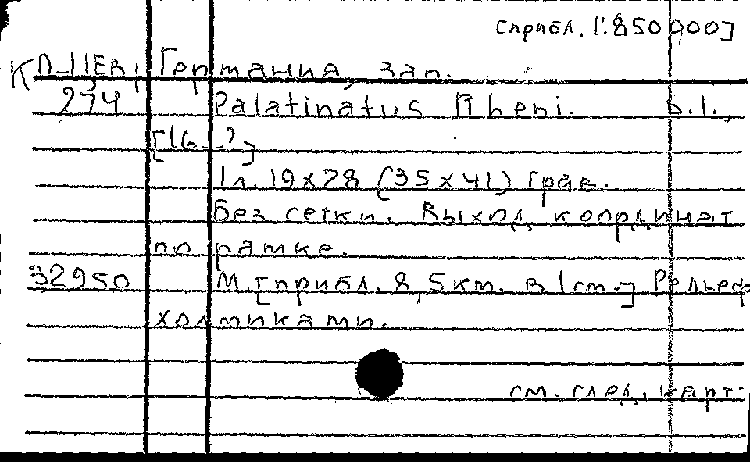 [прибл. 1:850 000]
К Германия, зап.
274 Palatinatus Rheni. b.l.,
[16..?]
1 л. 19x28 (35x41) грав.
Без сетки. Выход. координат
по рамке.
32950 М. [прибл. 8,5 км. в 1 см.] Рельеф
холмиками.
см. след. карт.